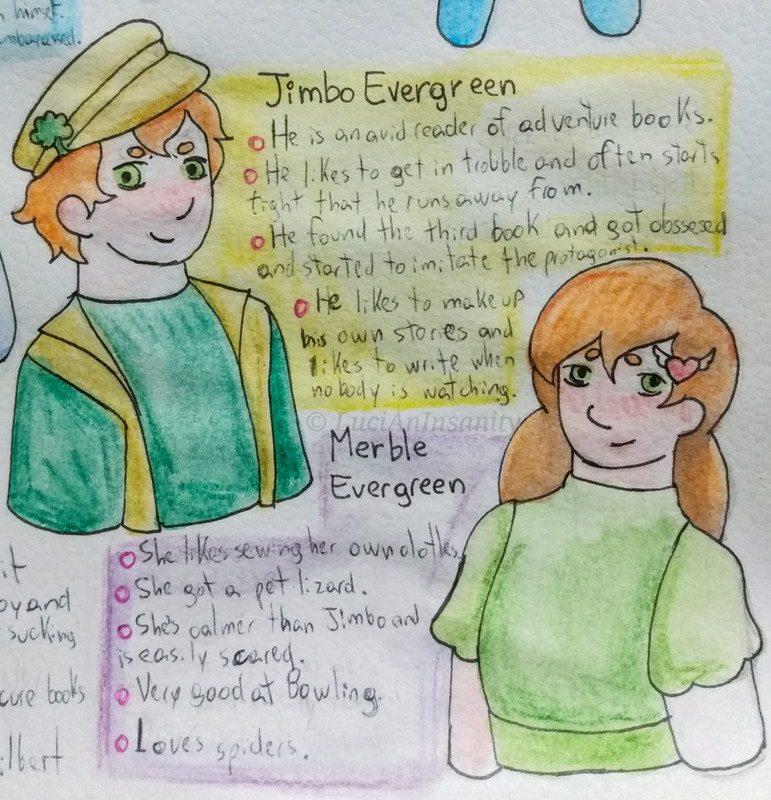 himself.
embarassed.
Jimbo Evergreen
He is an avid reader of adventure books.
He likes to get in trobble and often starts
fight that he runs away from.
He found the third book and got obssesed
and started to imitate the protagonist.
He likes to make up
his own stories and
likes to write when
nobody is watching.
© LuciAnInsanity
Merble
Evergreen
She likes sewing her own clothes.
She got a pet lizard.
She's calmer than Jimbo and
is easily scared.
Very good at Bowling.
Loves spiders.
it
and
sucking
books